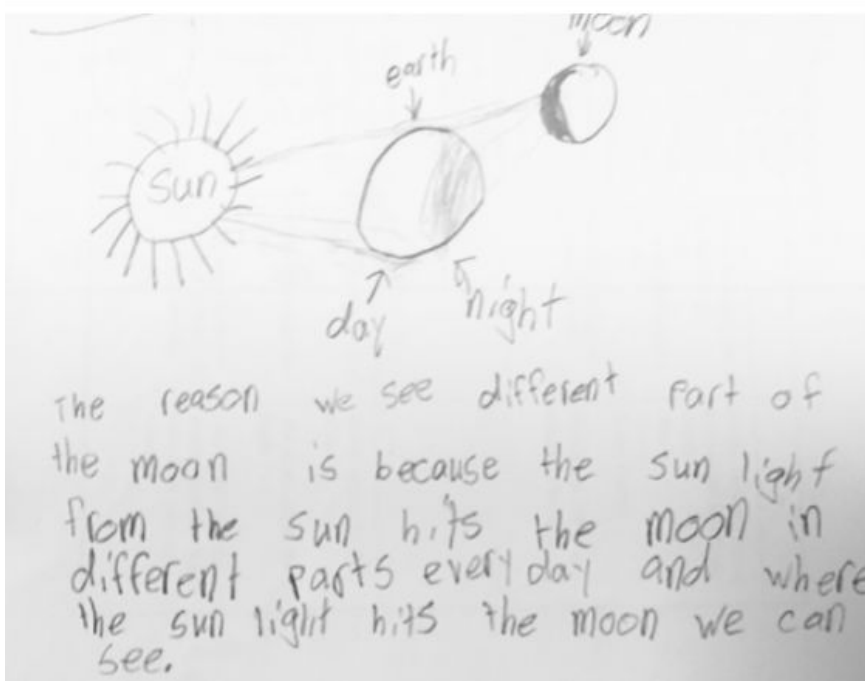 moon
earth
sun
day
night
The reason we see different part of
the moon is because the sun light
from the sun hits the moon in
different parts every day and where
the sun light hits the moon we can
see.